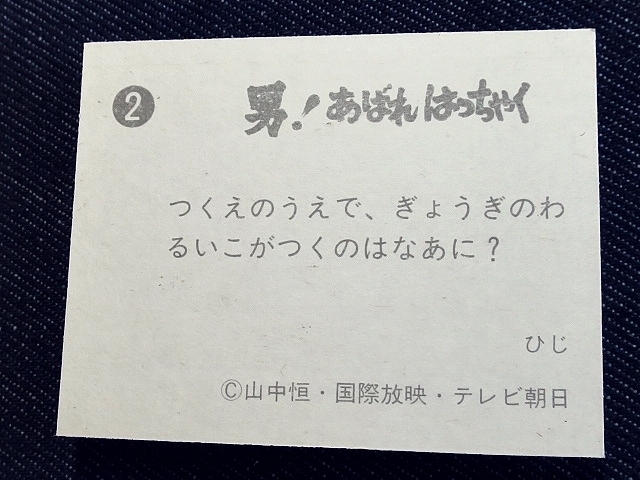 2
男!あばれはっちゃく
つくえのうえで、ぎょうぎのわ
るいこがつくのはなあに?
ひじ
©山中恒・国際放映・テレビ朝日